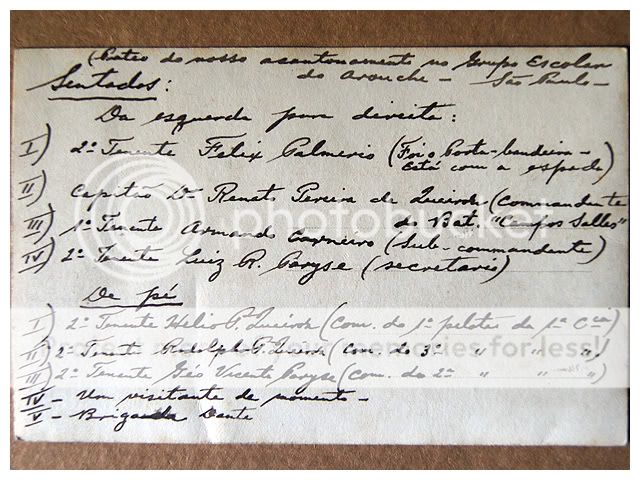 (Pateo do nosso acantonamento no Grupo Escolar
do Arouche — São Paulo —
Sentados:
Da esquerda para direita:
I) 2º Tenente Felix Palmerio (Foi o Porta-bandeira —
Está com a espada)
II) Capitão Dr. Renato Pereira de Queiroz (commandante
do Bat. "Campos Salles"
III) 1º Tenente Armando Carneiro (Sub-commandente)
IV) 2º Tenente Luiz R. Paryse (secretario)
De pé
I) 2º Tenente Helio P. Queiroz (Com. do 1º pelotão da 1ª Cia)
II) 2º Tenente Rodolpho P. Queiroz (Com. do 3º " " ")
III) 2º Tenente Géo Vicente Paryse (com. do 2º " " ")
IV — Um visitante de momento —
V — Brigada Dante
photobucket
Protect more of your memories for less!